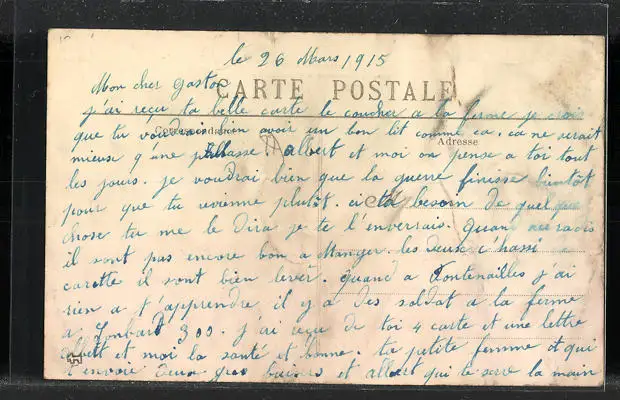 le 26 Mars 1915
Mon cher Gaston
CARTE POSTALE
j'ai reçu ta belle carte le coucher a la ferme je crois
Correspondance
que tu voudrai bien avoir un bon lit comme ça. ça ne serait
Adresse
mieux q'une paillasse albert et moi on pense a toi tout
les jours. je voudrai bien que la guerre finisse bientôt
pour que tu revienne plutôt. ci ta besoin de quelque
chose tu me le dira je te l'enverrais. quand au radis
il sont pas encore bon a manger. les deux c'hassi
carotte il sont bien lever. quand a Fontenailles j'ai
rien a t'apprendre il y a des soldat a la ferme
a 300. j'ai reçu de toi 4 carte et une lettre
albert et moi la santé et bonne. ta petite femme et qui
t'envoie deux gros baisers et albert qui te serre la main